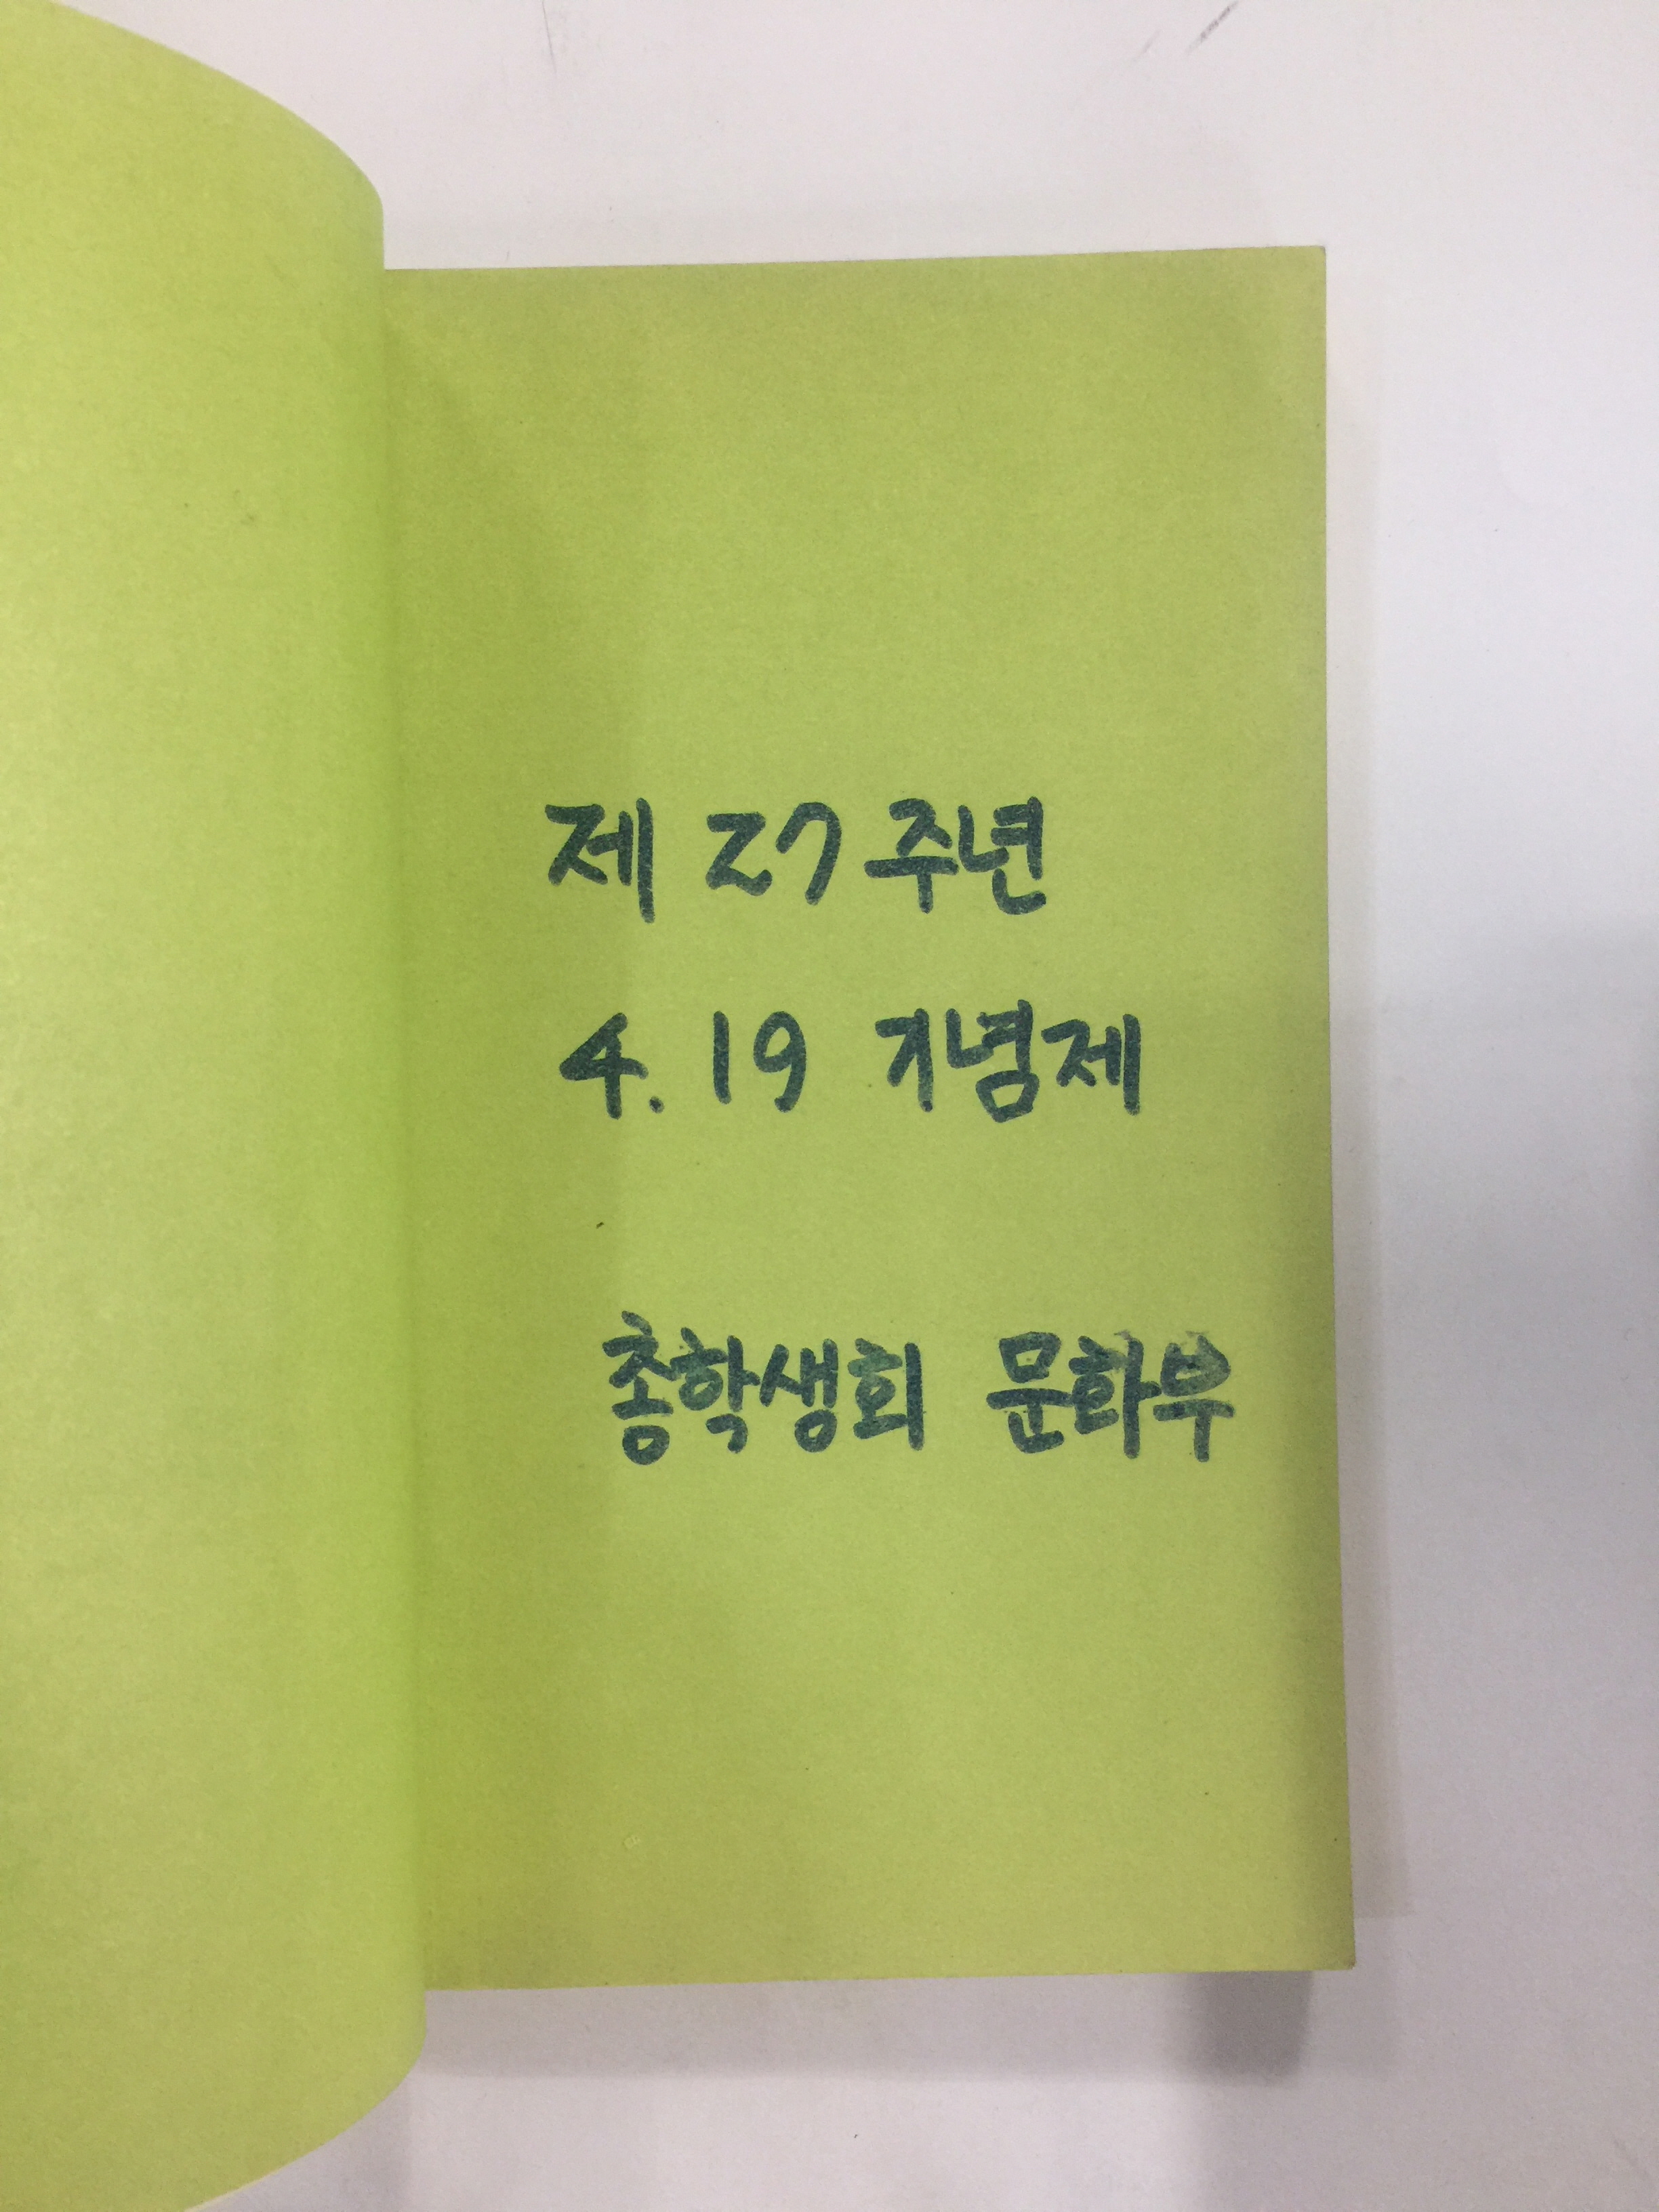 제 27 주년
4. 19 기념제
총학생회 문화부